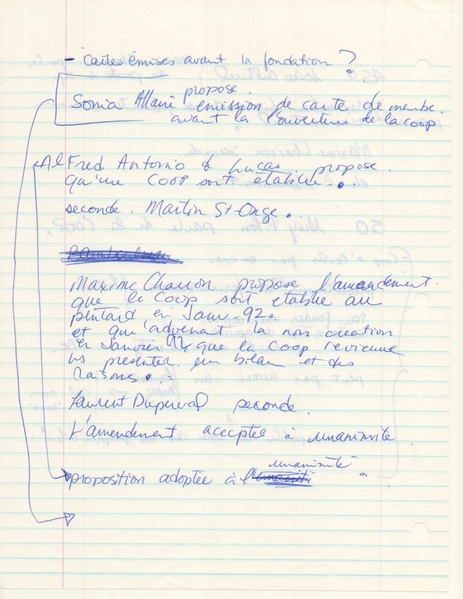 - Cartes émises avant la fondation ?
propose
Sonia Allani émission de carte de membre
avant la l'ouverture de la coop
Alfred Antonio & Lucas propose
qu'une COOP soit établie..
seconde. Martin St-Onge.
Maxime Charron propose l'amendement
que la Coop soit établie au
pintard en Janv-92.
et qu'advenant la non création
en Janvier 92 que la coop revienne
ns présenter un bilan et des
raisons...
Laurent Duperval seconde.
L'amendement acceptée à unanimité.
unanimité
proposition adoptée à l'